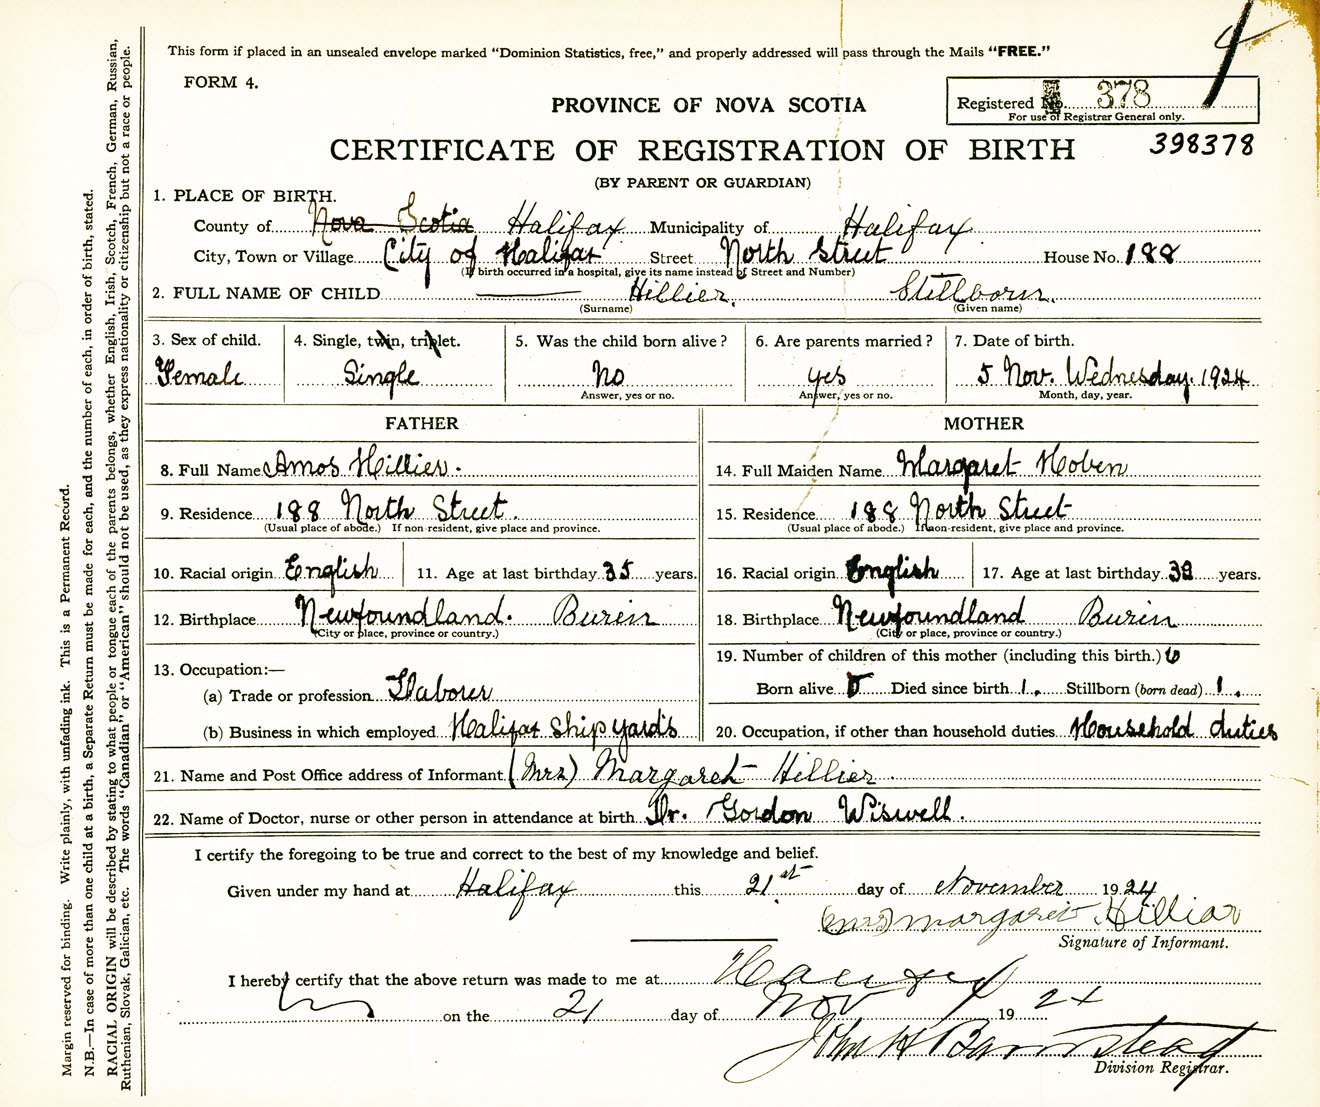 This form if placed in an unsealed envelope marked “Dominion Statistics, free,” and properly addressed will pass through the Mails “FREE.”
4
FORM 4.
PROVINCE OF NOVA SCOTIA
Registered No. 378
For use of Registrar General only.
CERTIFICATE OF REGISTRATION OF BIRTH
398378
(BY PARENT OR GUARDIAN)
1. PLACE OF BIRTH.
County of Nova Scotia Halifax Municipality of Halifax
City, Town or Village City of Halifax Street North Street House No. 188
(If birth occurred in a hospital, give its name instead of Street and Number)
2. FULL NAME OF CHILD Hillier. Stillborn.
(Surname) (Given name)
3. Sex of child. 4. Single, twin, triplet. 5. Was the child born alive? 6. Are parents married? 7. Date of birth.
Female Single No yes 5 Nov. Wednesday. 1924
Answer, yes or no. Answer, yes or no. Month, day, year.
FATHER MOTHER
8. Full Name Amos Hillier. 14. Full Maiden Name Margaret Hoben
9. Residence 188 North Street. 15. Residence 188 North Street
(Usual place of abode.) If non-resident, give place and province. (Usual place of abode.) If non-resident, give place and province.
10. Racial origin English 11. Age at last birthday 35 years. 16. Racial origin English 17. Age at last birthday 38 years.
12. Birthplace Newfoundland. Burin 18. Birthplace Newfoundland Burin
(City or place, province or country.) (City or place, province or country.)
13. Occupation:— 19. Number of children of this mother (including this birth.) 6
(a) Trade or profession Laborer Born alive 5 Died since birth 1. Stillborn (born dead) 1.
(b) Business in which employed Halifax Ship yards 20. Occupation, if other than household duties Household duties
21. Name and Post Office address of Informant (Mrs) Margaret Hillier.
22. Name of Doctor, nurse or other person in attendance at birth Dr. Gordon Wiswell.
I certify the foregoing to be true and correct to the best of my knowledge and belief.
Given under my hand at Halifax this 21st day of November 1924
(mrs) margaret Hilliar
Signature of Informant.
I hereby certify that the above return was made to me at Halifax
on the 21 day of Nov 1924
John H Barnstead
Division Registrar.
Margin reserved for binding. Write plainly, with unfading ink. This is a Permanent Record.
N.B.—In case of more than one child at a birth, a Separate Return must be made for each, and the number of each, in order of birth, stated.
RACIAL ORIGIN will be described by stating to what people or tongue each of the parents belongs, whether English, Irish, Scotch, French, German, Russian,
Ruthenian, Slovak, Galician, etc. The words “Canadian” or “American” should not be used, as they express nationality or citizenship but not a race or people.